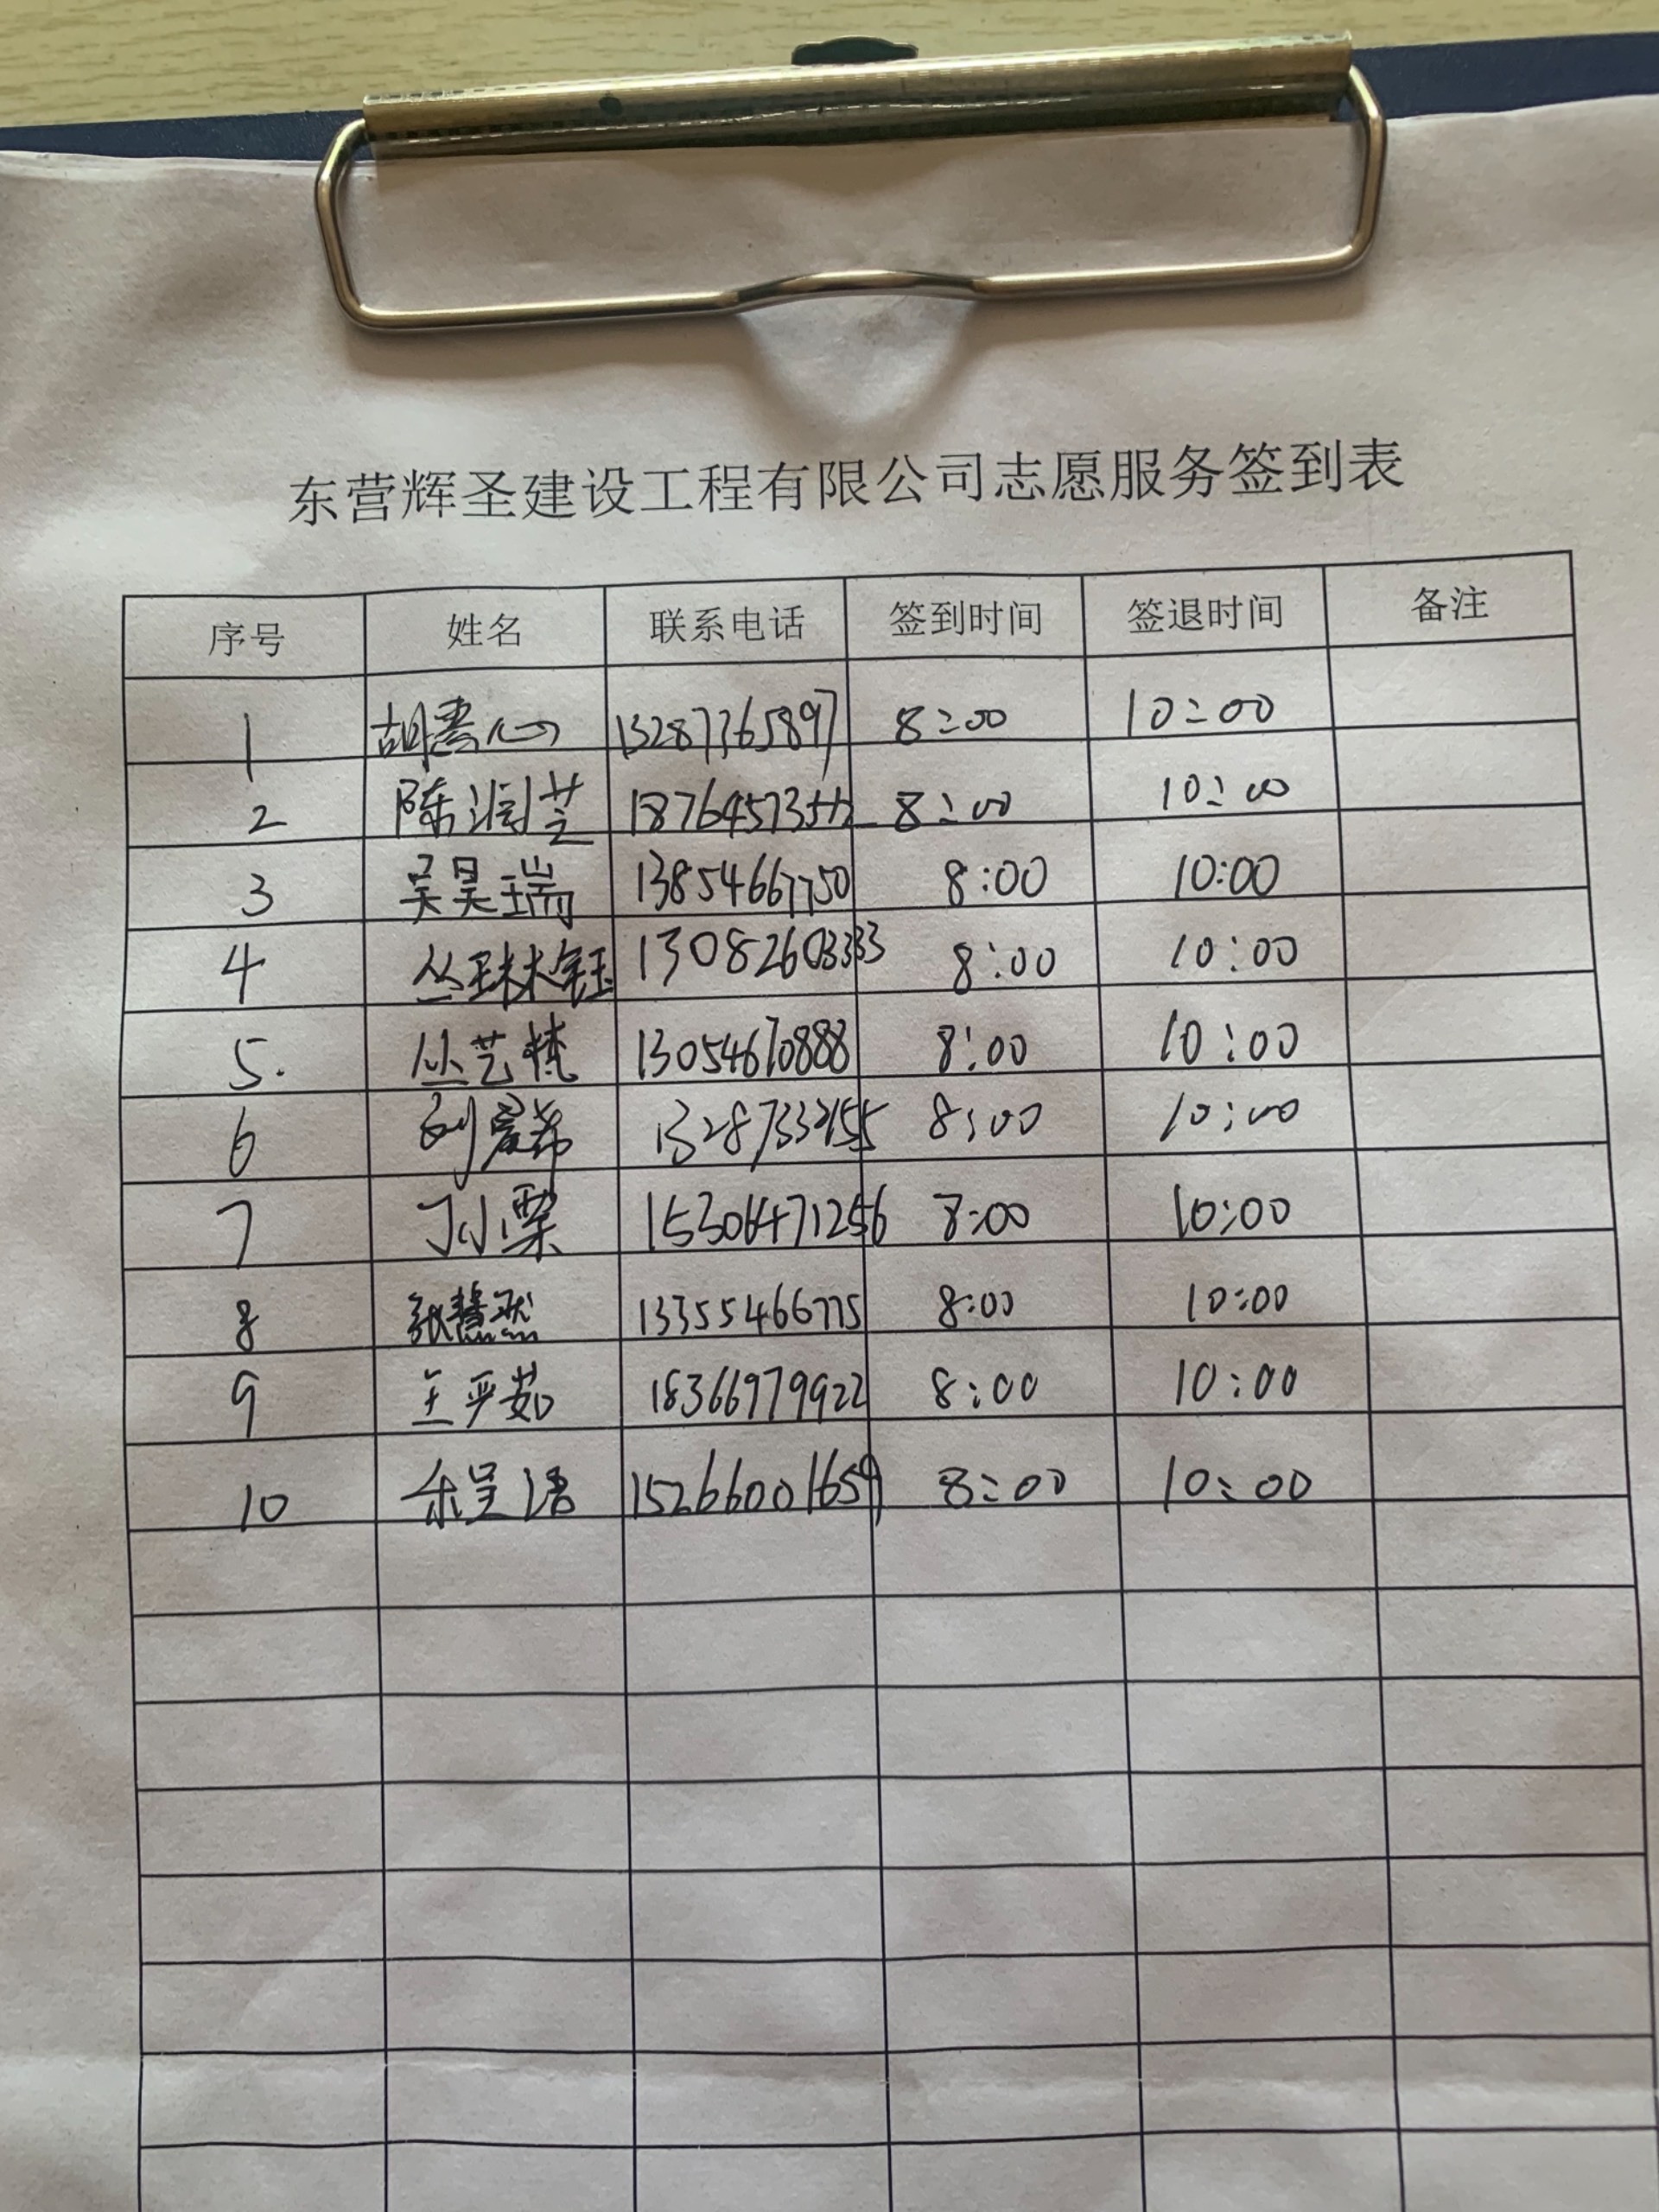 东营辉圣建设工程有限公司志愿服务签到表
序号 姓名 联系电话 签到时间 签退时间 备注
1 胡 心 13287365897 8:00 10:00
2 陈润芝 187645735 8:00 10:00
3 吴昊瑞 13854667750 8:00 10:00
4 丛 钰 13082603333 8:00 10:00
5. 丛艺梵 13054670888 8:00 10:00
6 刘 希 13287332155 8:00 10:00
7 丁小栗 15306471256 8:00 10:00
8 张慧然 13355466775 8:00 10:00
9 王平茹 18366979922 8:00 10:00
10 呈语 15266001659 8:00 10:00